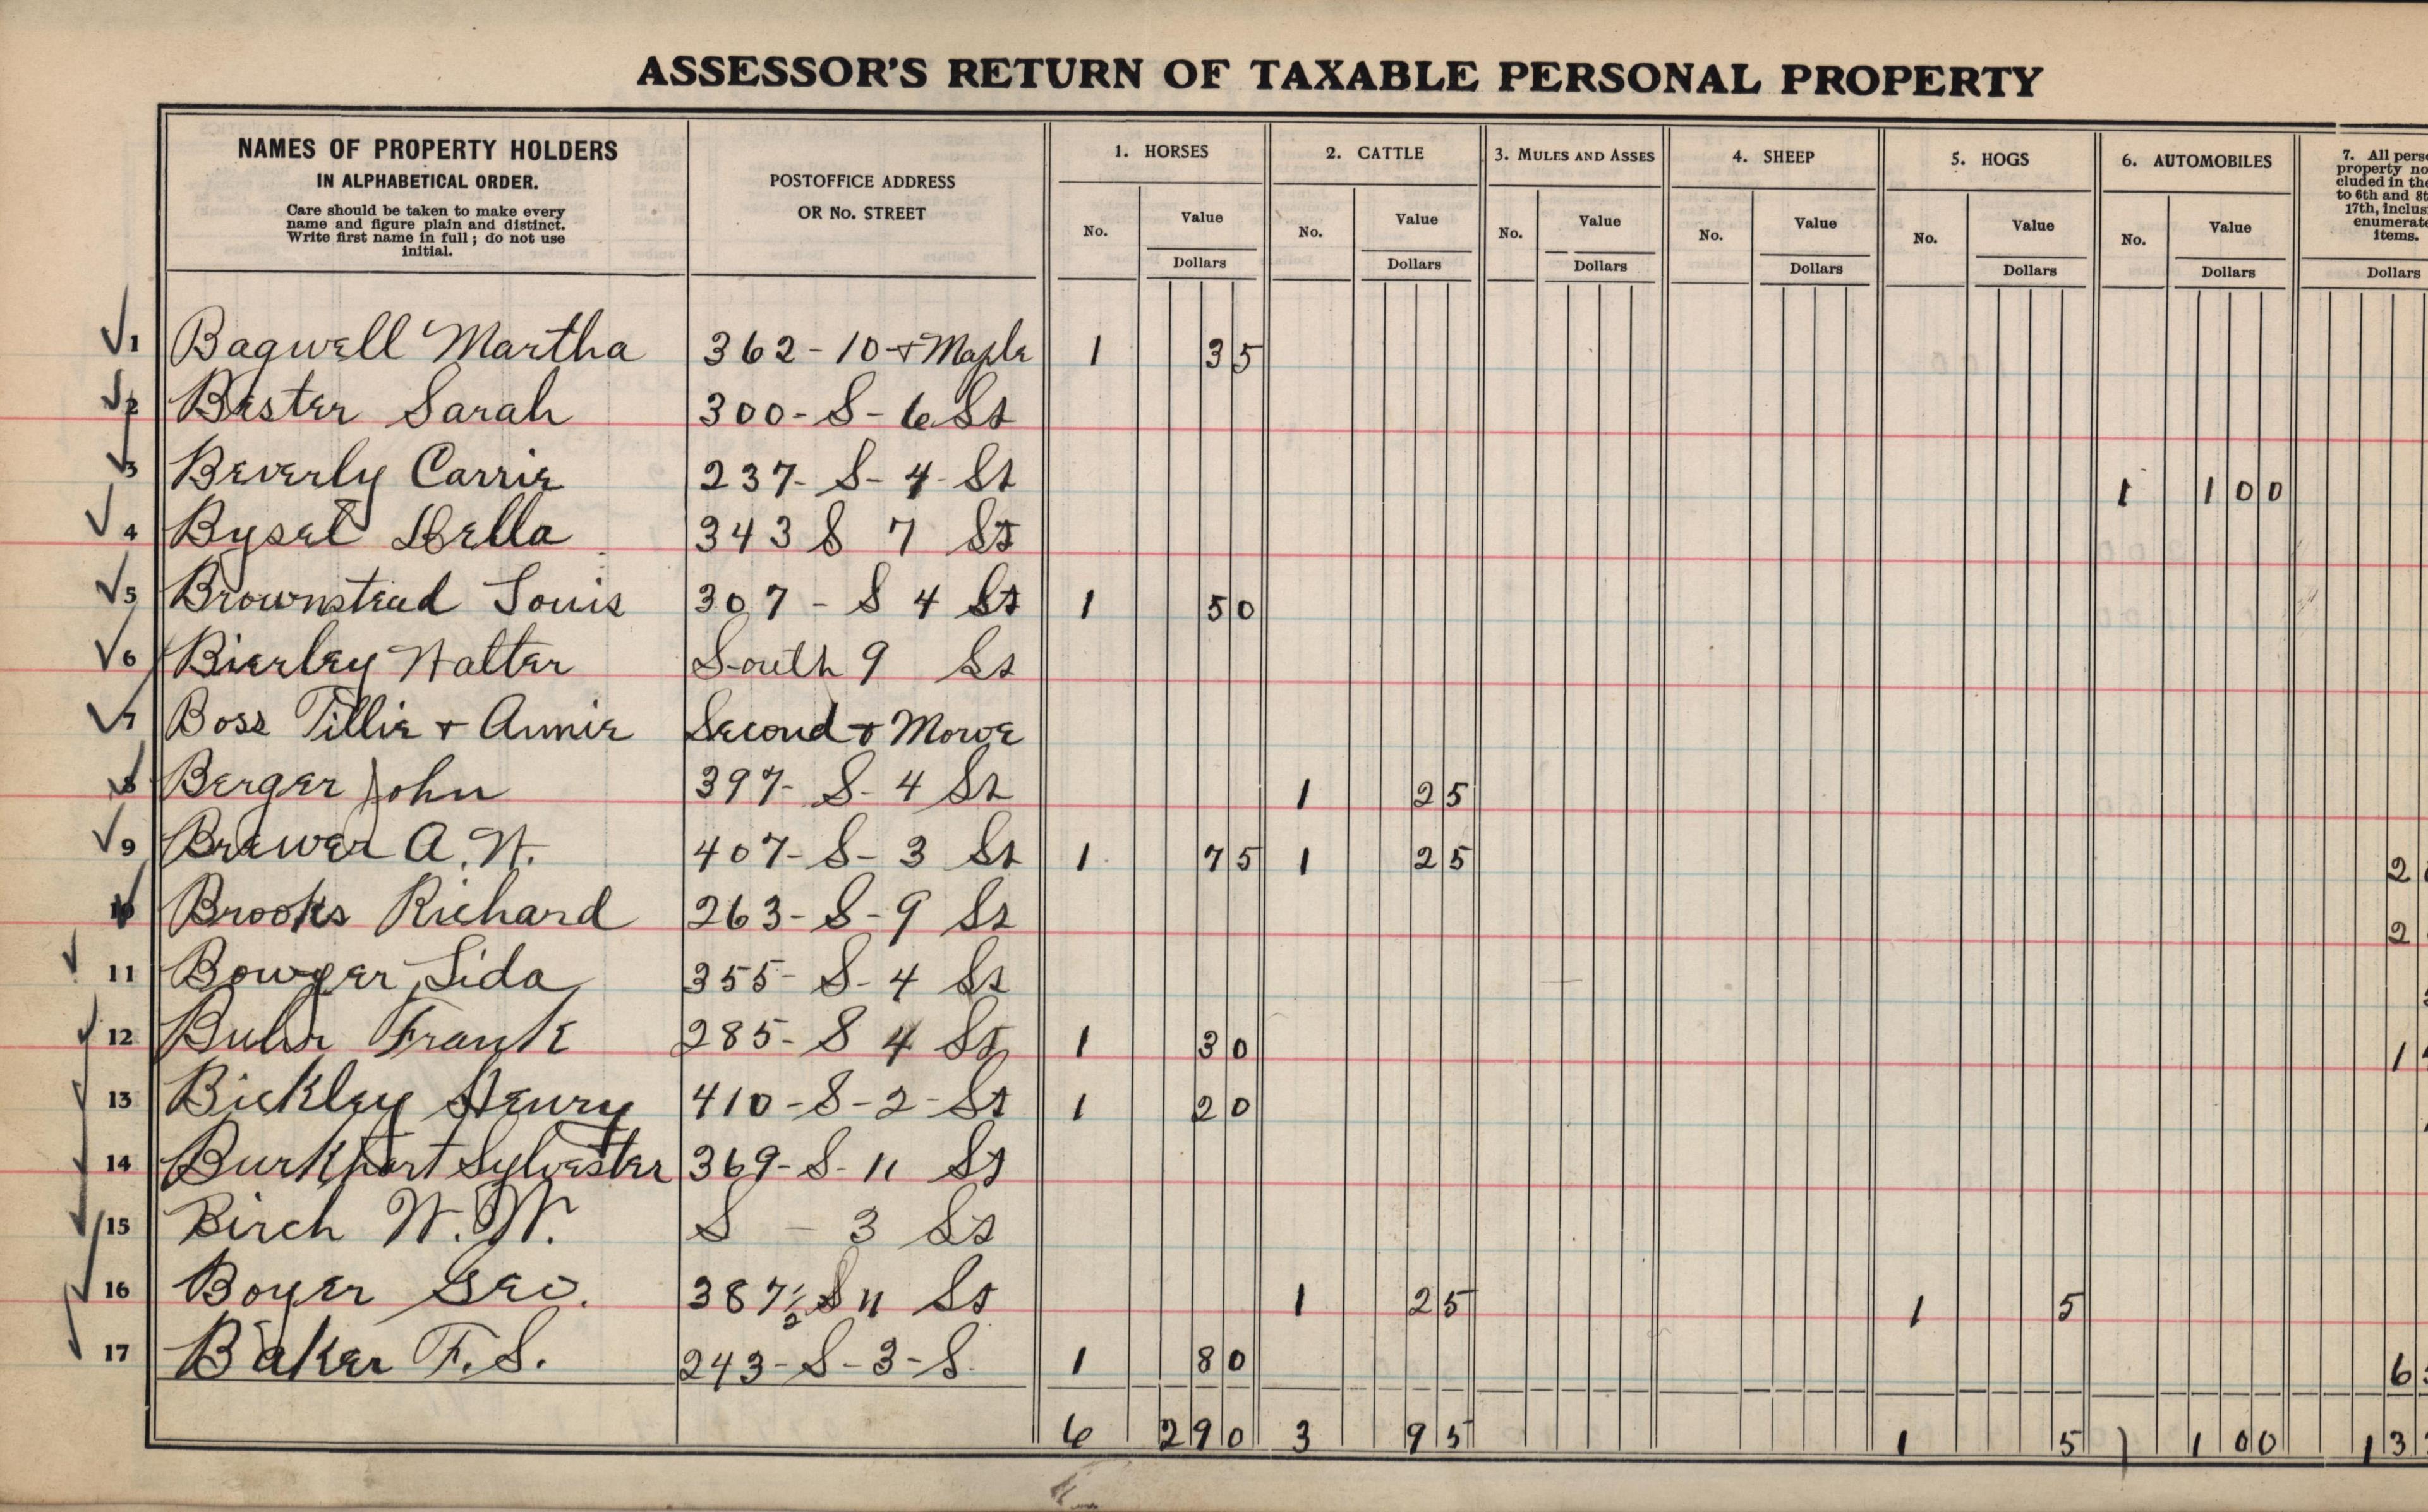 ASSESSOR'S RETURN OF TAXABLE PERSONAL PROPERTY
NAMES OF PROPERTY HOLDERS IN ALPHABETICAL ORDER. Care should be taken to make every name and figure plain and distinct. Write first name in full; do not use initial.
POSTOFFICE ADDRESS OR No. STREET
1. HORSES No. Value Dollars
2. CATTLE No. Value Dollars
3. MULES AND ASSES No. Value Dollars
4. SHEEP No. Value Dollars
5. HOGS No. Value Dollars
6. AUTOMOBILES No. Value Dollars
7. All pers
property no
cluded in the
to 6th and 8t
17th, inclus
enumerate
items.
Dollars
1 Bagwell Martha 362-10 + Maple 1 35
2 Bester Sarah 300-S-6 St
3 Beverly Carrie 237-S-4-St 1 100
4 Bysel Della 343 S 7 St
5 Brownstead Louis 307-S 4 St 1 50
6 Bierley Walter South 9 St
7 Boss Tillie + Annie Second + Mowe
8 Berger John 397-S-4 St 1 25
9 Brewer A. W. 407-S-3 St 1 75 1 25 2
10 Brooks Richard 263-S-9 St 2
11 Bowyer Lida 355-S-4 St
12 Buhr Frank 285-S 4 St 1 30 1
13 Bickley Henry 410-S-2-St 1 20
14 Burkhart Sylvester 369-S-11 St
15 Birch W. W. S - 3 St
16 Boyer Geo. 387 1/2 S 11 St 1 25 1 5
17 Baker F. S. 243-S-3-S 1 80 6
6 290 3 95 1 5 1 100 13